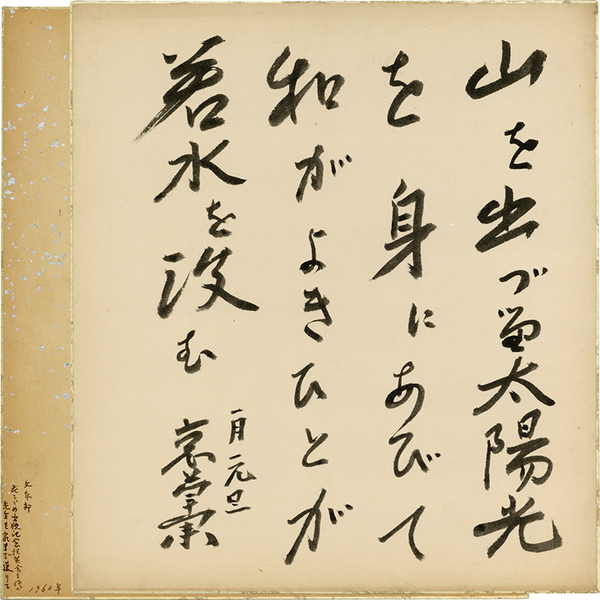 山を出づる太陽光
を身にあびて
和がよきひとが
若水を汲む
一月元旦
哀草果
1960年